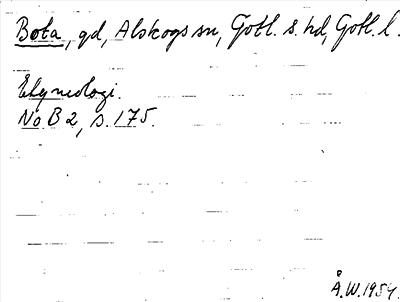 Bota, gd, Alskogs sn, Gotl. s. hd, Gotl. l.
Etymologi.
NoB 2, s. 175.
Å.W. 1954.